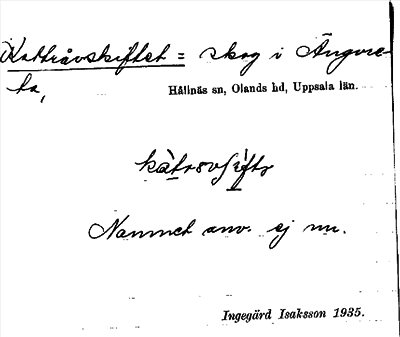 Kattråvskiftet = skog i Ängvre-
ta,
Hållnäs sn, Olands hd, Uppsala län.
Namnet anv. ej nu.
Ingegärd Isaksson 1935.